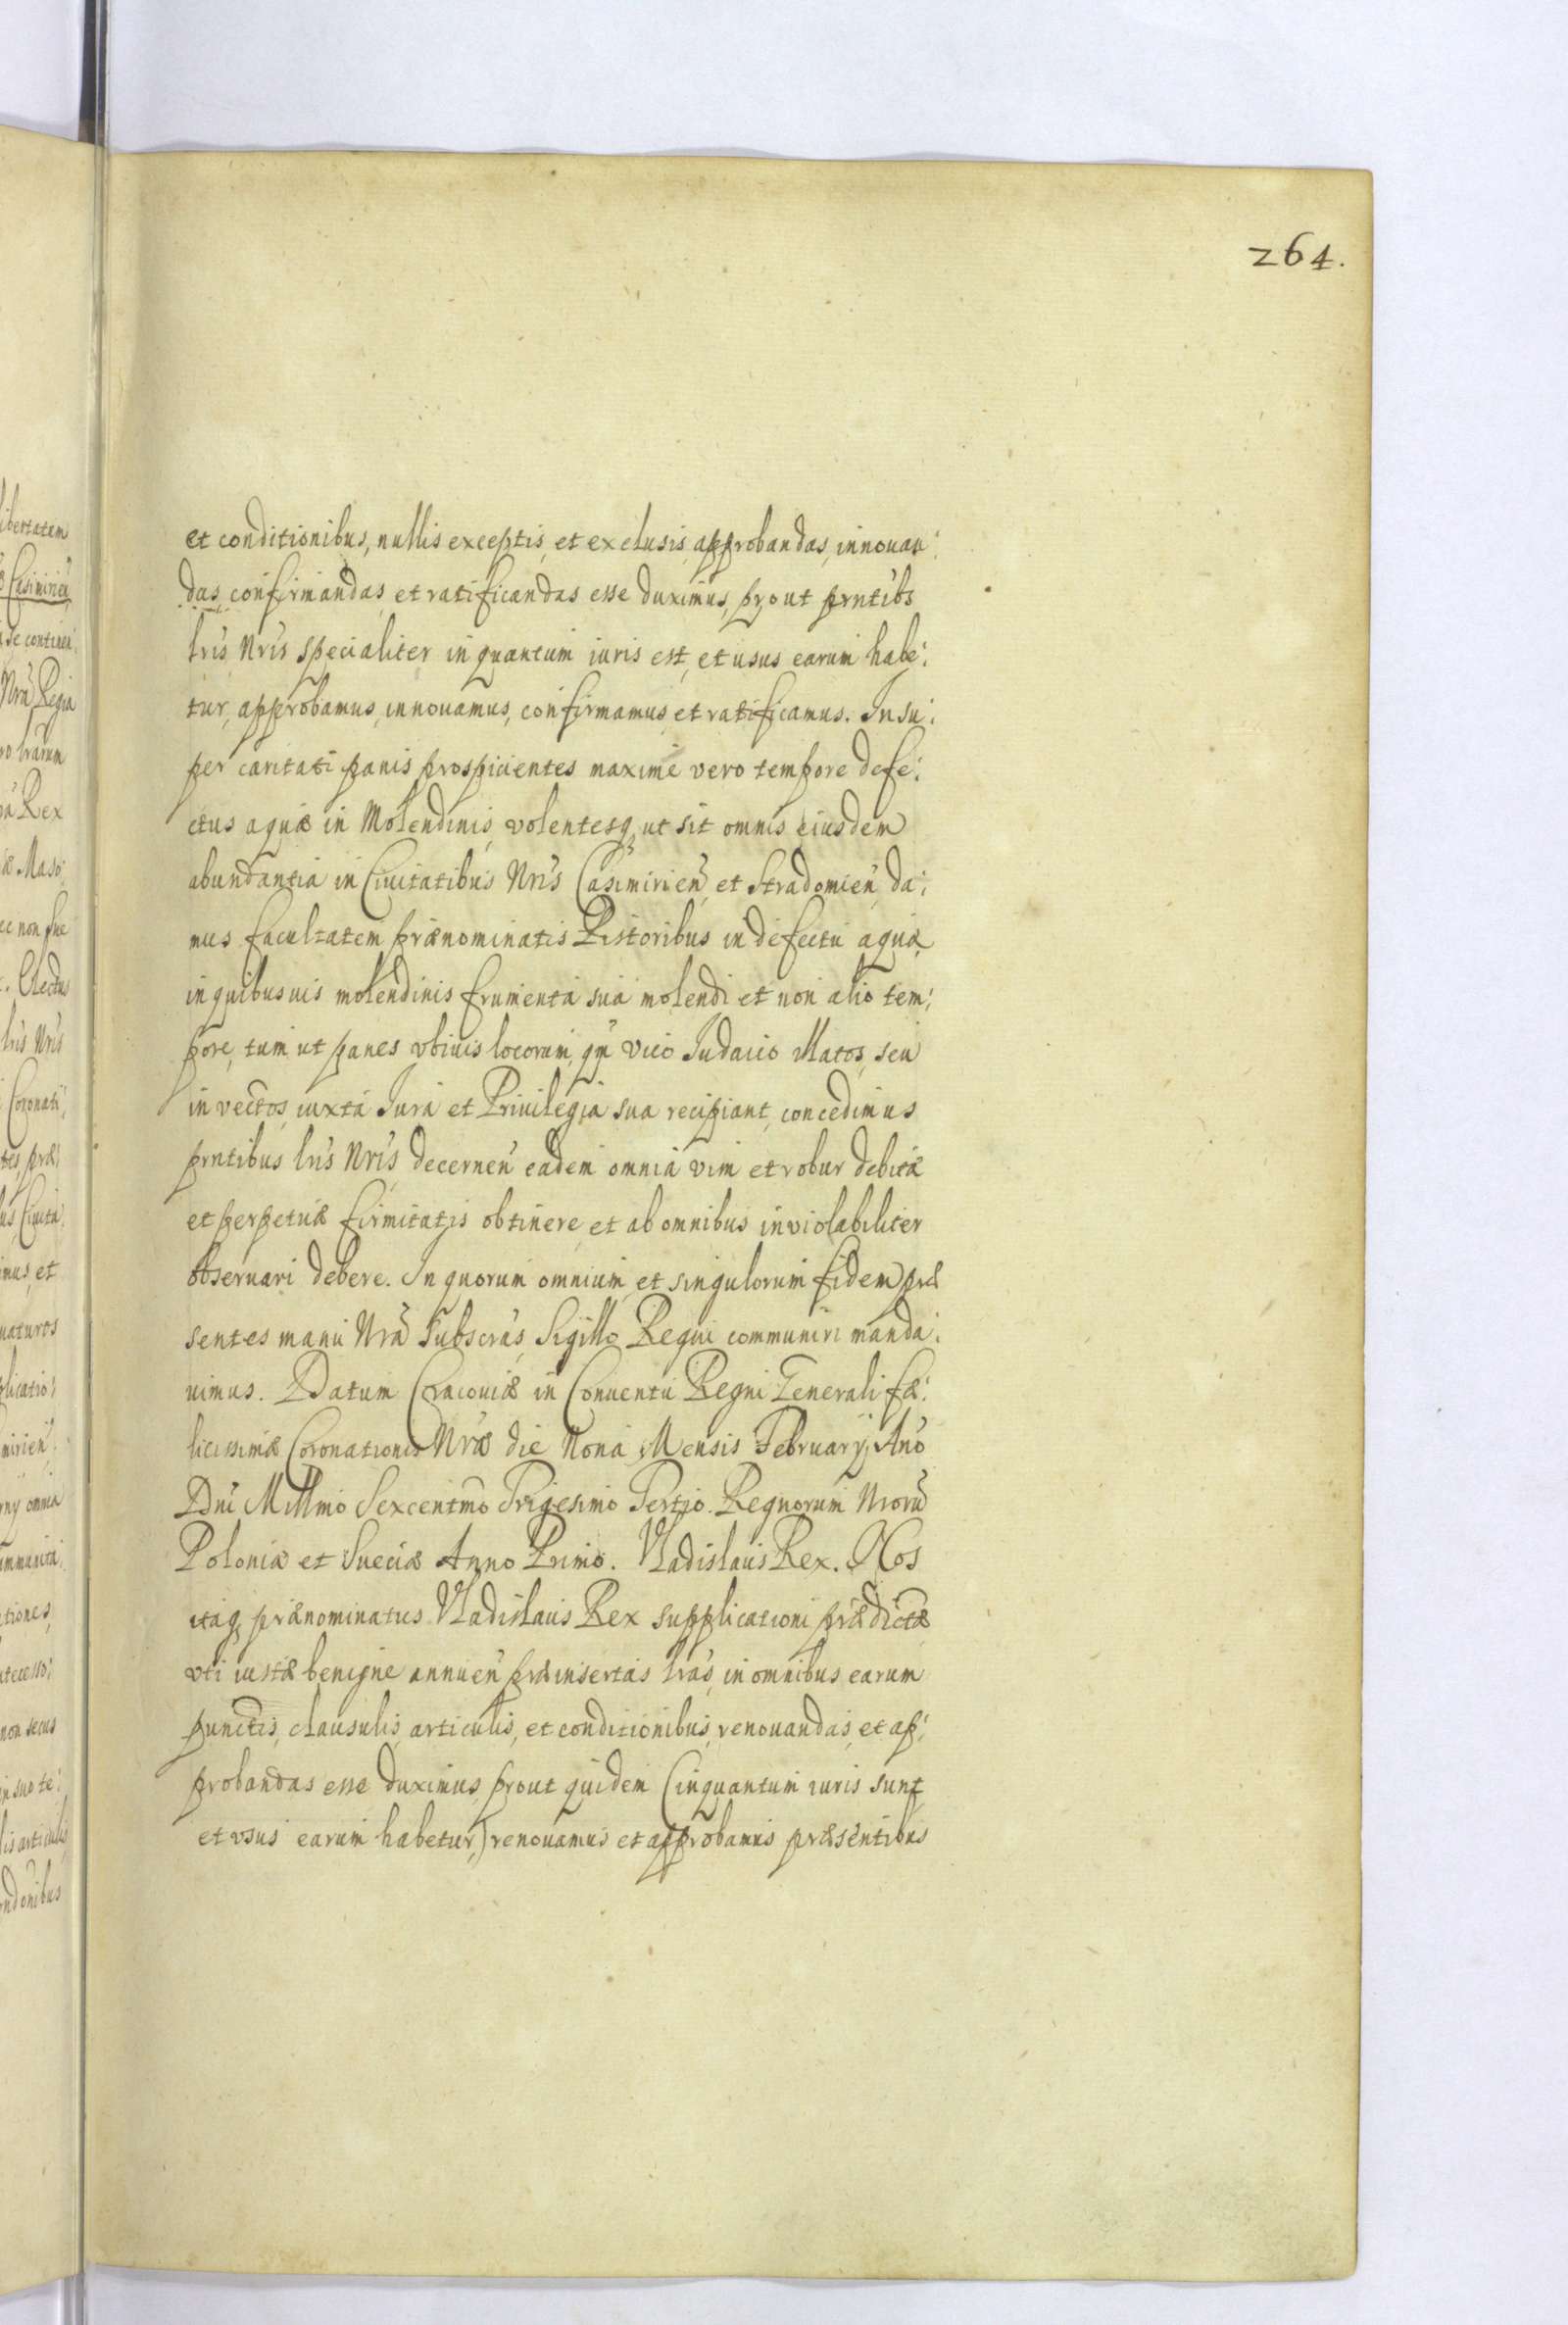 264.
et conditionibus, nullis exceptis, et exclusis, approbandas, innouan:
das, confirmandas, et ratificandas esse duximus, prout prntibs
lris Nris specialiter in quantum iuris est, et usus earum habe:
tur, approbamus, innouamus, confirmamus, et ratificamus. Insu:
per caritati panis prospicientes maxime vero tempore defe:
ctus aquæ in Molendinis, volentesq, ut sit omnis eiusdem
abundantia in Ciuitatibus Nris Casimirien, et Stradomien, da:
mus facultatem prænominatis Pistoribus in defectu aquæ
in quibusuis molendinis frumenta sua molendi et non alio tem:
pore, tum ut panes vbiuis locorum, in vico Iudaico Illatos, seu
in vectos, iuxta Iura et Priuilegia sua recipiant, concedimus
prntibus lris Nris decernen eadem omnia vim et robur debitæ
et perpetuæ firmitatis obtinere, et ab omnibus inviolabiliter
obseruari debere. In quorum omnium, et singulorum fidem præ
sentes manu Nra Subscras, Sigillo Regni communiri manda:
uimus. Datum Cracouiæ in Conuentu Regni Generali fæ:
licissimæ Coronationis Nræ die Nona Mensis February, Ano
Dni Millmo Sexcentmo Trigesimo Tertio. Regnorum Nroru
Poloniæ et Sueciæ Anno Primo. Vladislaus Rex. Nos
itaq, prænominatus Vladislaus Rex supplicationi prædictæ
vti iustæ benigne annuen præinsertas lras, in omnibus earum
punctis, clausulis, articulis, et conditionibus, renouandas, et ap:
probandas esse duximus, prout quidem (inquantum iuris sunt,
et vsus earum habetur,) renouamus et approbamus præsentibus